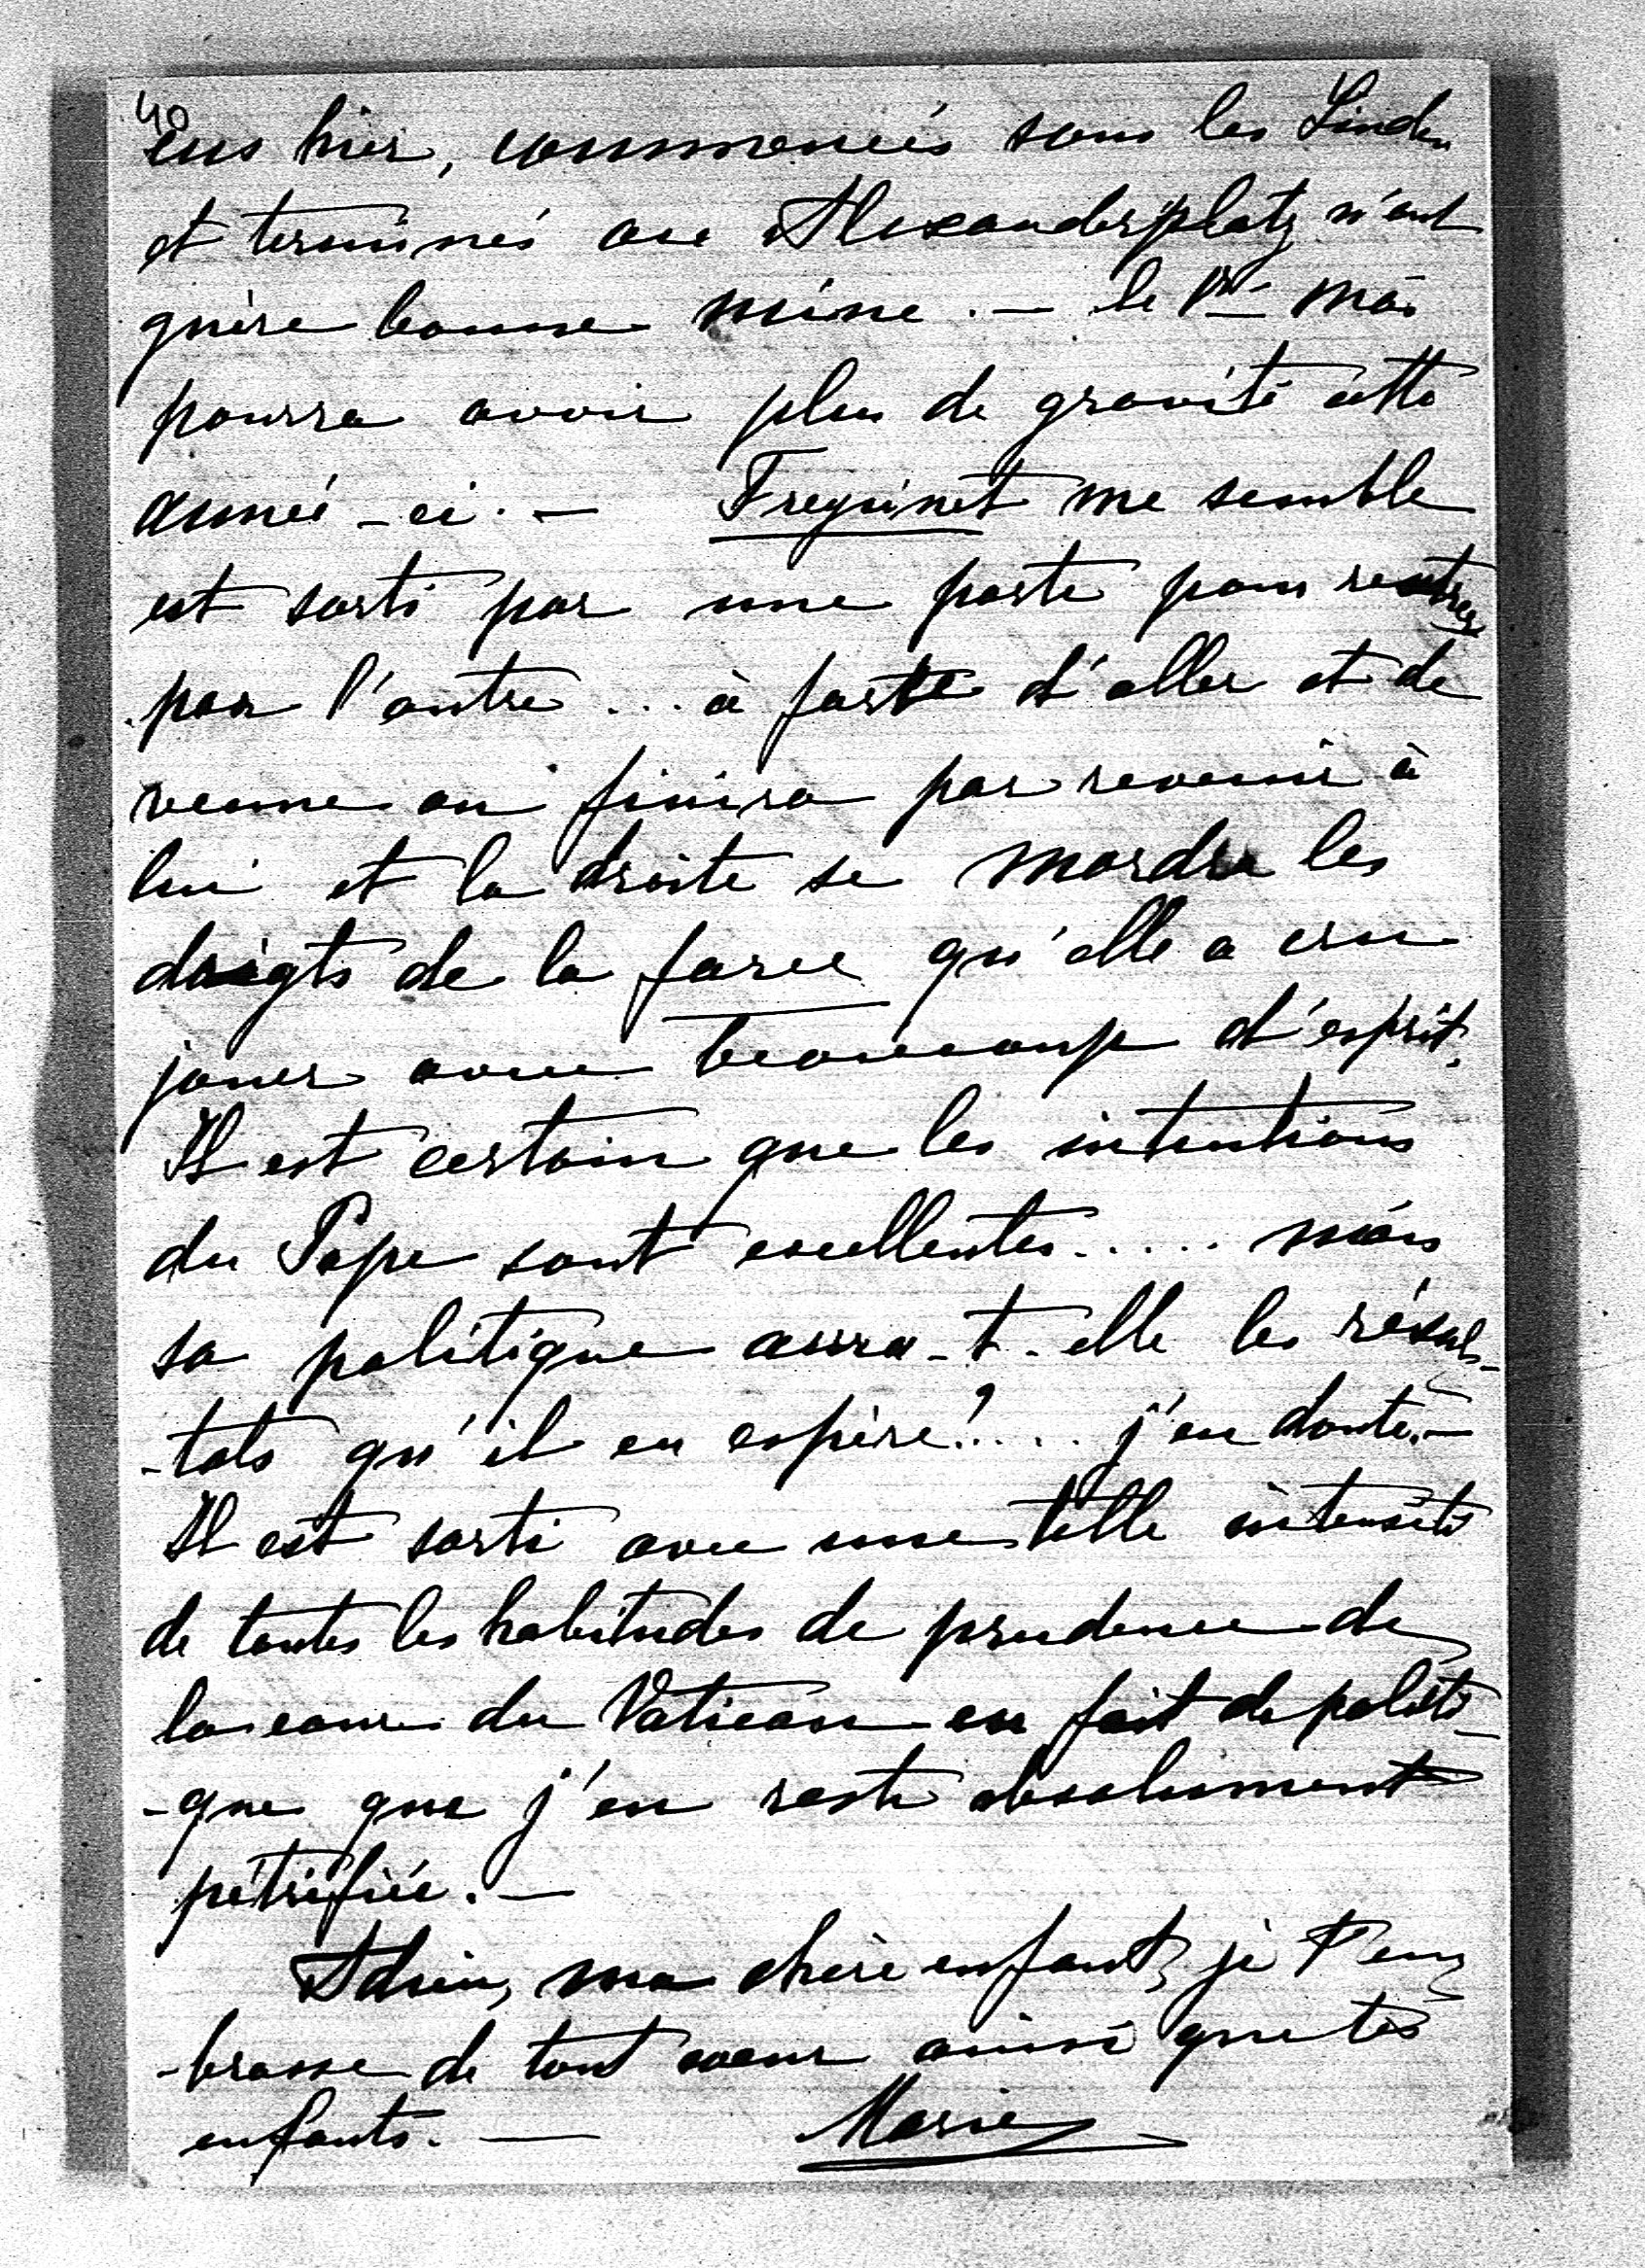 40
eus hier, commencés sous les Linden
et terminés au Alexanderplatz n'ont
guère bonne mine. — le 1er Mai
pourra avoir plus de gravité cette
année-ci. — Freycinet me semble
est sorti par une porte pour rentrer
par l'autre... à force d'aller et de
venue on finira par revenir à
lui et la droite se mordra les
doigts de la farce qu'elle a cru
jouer avec beaucoup d'esprit.
Il est certain que les intentions
du Pape sont excellentes..... mais
sa politique aura-t-elle les résul-
-tats qu'il en espère?.... j'en doute. —
Il est sorti avec une telle intensité
de toutes les habitudes de prudence de
la cour du Vatican en fait de politi-
-que que j'en reste absolument
pétrifiée. —
Adieu, ma chère enfant, je t'em-
-brasse de tout coeur ainsi que tes
enfants. — Marie